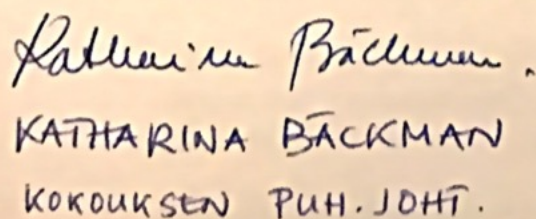 Katharina Bäckman.
KATHARINA BÄCKMAN
KOKOUKSEN PUH.JOHT.